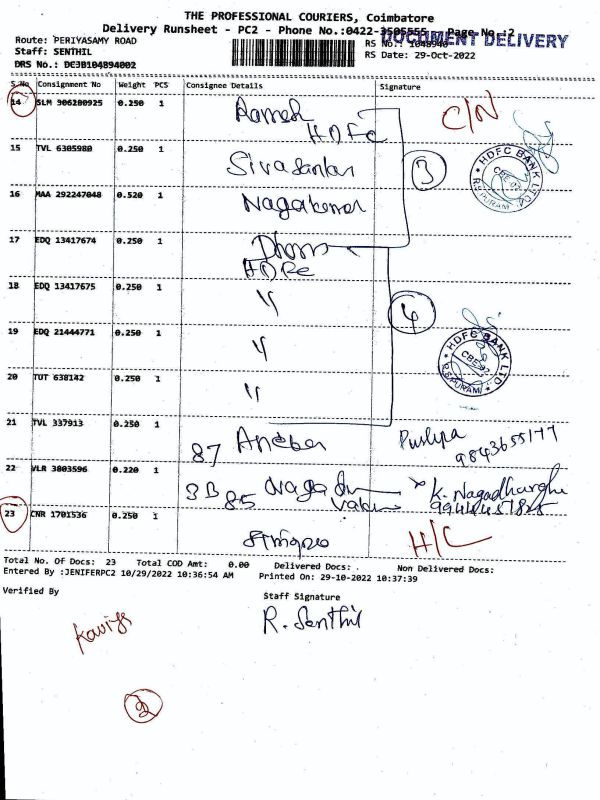 THE PROFESSIONAL COURIERS, Coimbatore
Delivery Runsheet - PC2 - Phone No.:0422-3505555 Page No.:2
DOCUMENT DELIVERY
Route: PERIYASAMY ROAD
RS No.: 1048940
Staff: SENTHIL
RS Date: 29-Oct-2022
DRS No.: DCJB104894002
S.No Consignment No Weight PCS Consignee Details Signature
14 SLM 306280925 0.250 1 Ramesh C/N
HDFC
15 TVL 6305980 0.250 1 Sivasankar 3
HDFC BANK LTD. CBE-02 R.S.PURAM
16 MAA 292247048 0.520 1 Nagakumar
17 EDQ 13417674 0.250 1
HDFC
18 EDQ 13417675 0.250 1 〃 4
19 EDQ 21444771 0.250 1 〃
HDFC BANK LTD. CBE-02 R.S.PURAM
20 TUT 638142 0.250 1 〃
21 TVL 337913 0.250 1 87 Pushpa
9843655177
22 VLR 3803596 0.220 1 3B 85 K. Nagadharshi
23 CNR 1701536 0.250 1 H/C
Total No. Of Docs: 23 Total COD Amt: 0.00 Delivered Docs: Non Delivered Docs:
Entered By :JENIFERPC2 10/29/2022 10:36:54 AM Printed On: 29-10-2022 10:37:39
Verified By Staff Signature
R. Senthil
2